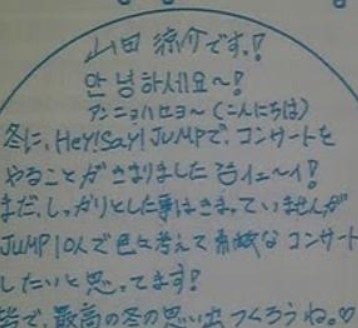 山田 涼介です。!
안녕하세요~!
アンニョハセヨ~ (こんにちは)
冬に、Hey!Say!JUMPで、コンサートを
やることがきまりました イェ~イ!
まだ、しっかりとした事はきまっていませんが
JUMP10人で色々考えて素敵なコンサート
したいと思ってます!
皆で、最高の冬の思い出つくろうね。♡